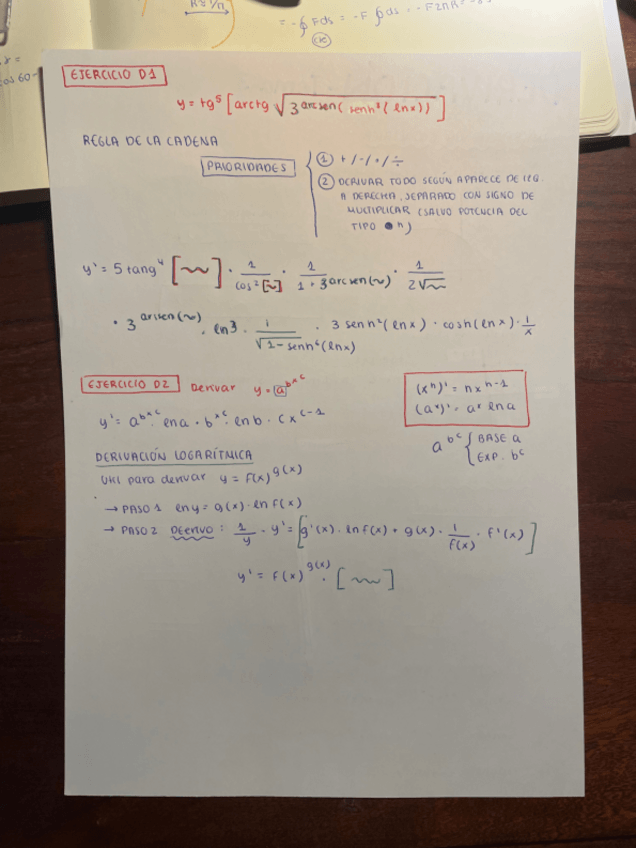 R = 1/π
= -∮ F ds = -F ∮ ds = -F2πR =
cos 60
EJERCICIO D1
y = tg⁵ [arctg √(3^arcsen(senh³(ln x)))]
REGLA DE LA CADENA
PRIORIDADES
① + / - / · / ÷
② DERIVAR TODO SEGÚN APARECE DE IZQ.
A DERECHA, SEPARADO CON SIGNO DE
MULTIPLICAR (SALVO POTENCIA DEL
TIPO ●ⁿ)
y' = 5 tang⁴ [~~] · 1/cos²[~] · 1/(1 + 3^arcsen(~)) · 1/(2√~)
· 3^arcsen(~) · ln3 · 1/√(1 - senh⁶(ln x)) · 3 senh²(ln x) · cosh(ln x) · 1/x
EJERCICIO D2 Derivar y = a^b^x^c
y' = a^b^x^c · ln a · b^x^c · ln b · c x^(c-1)
(xⁿ)' = n xⁿ⁻¹
(aˣ)' = aˣ ln a
a^b^c { BASE a
EXP. b^c
DERIVACIÓN LOGARÍTMICA
Util para derivar y = f(x)^g(x)
→ PASO 1 ln y = g(x) · ln f(x)
→ PASO 2 DERIVO : 1/y · y' = [g'(x) · ln f(x) + g(x) · 1/f(x) · f'(x)]
y' = f(x)^g(x) · [~~]